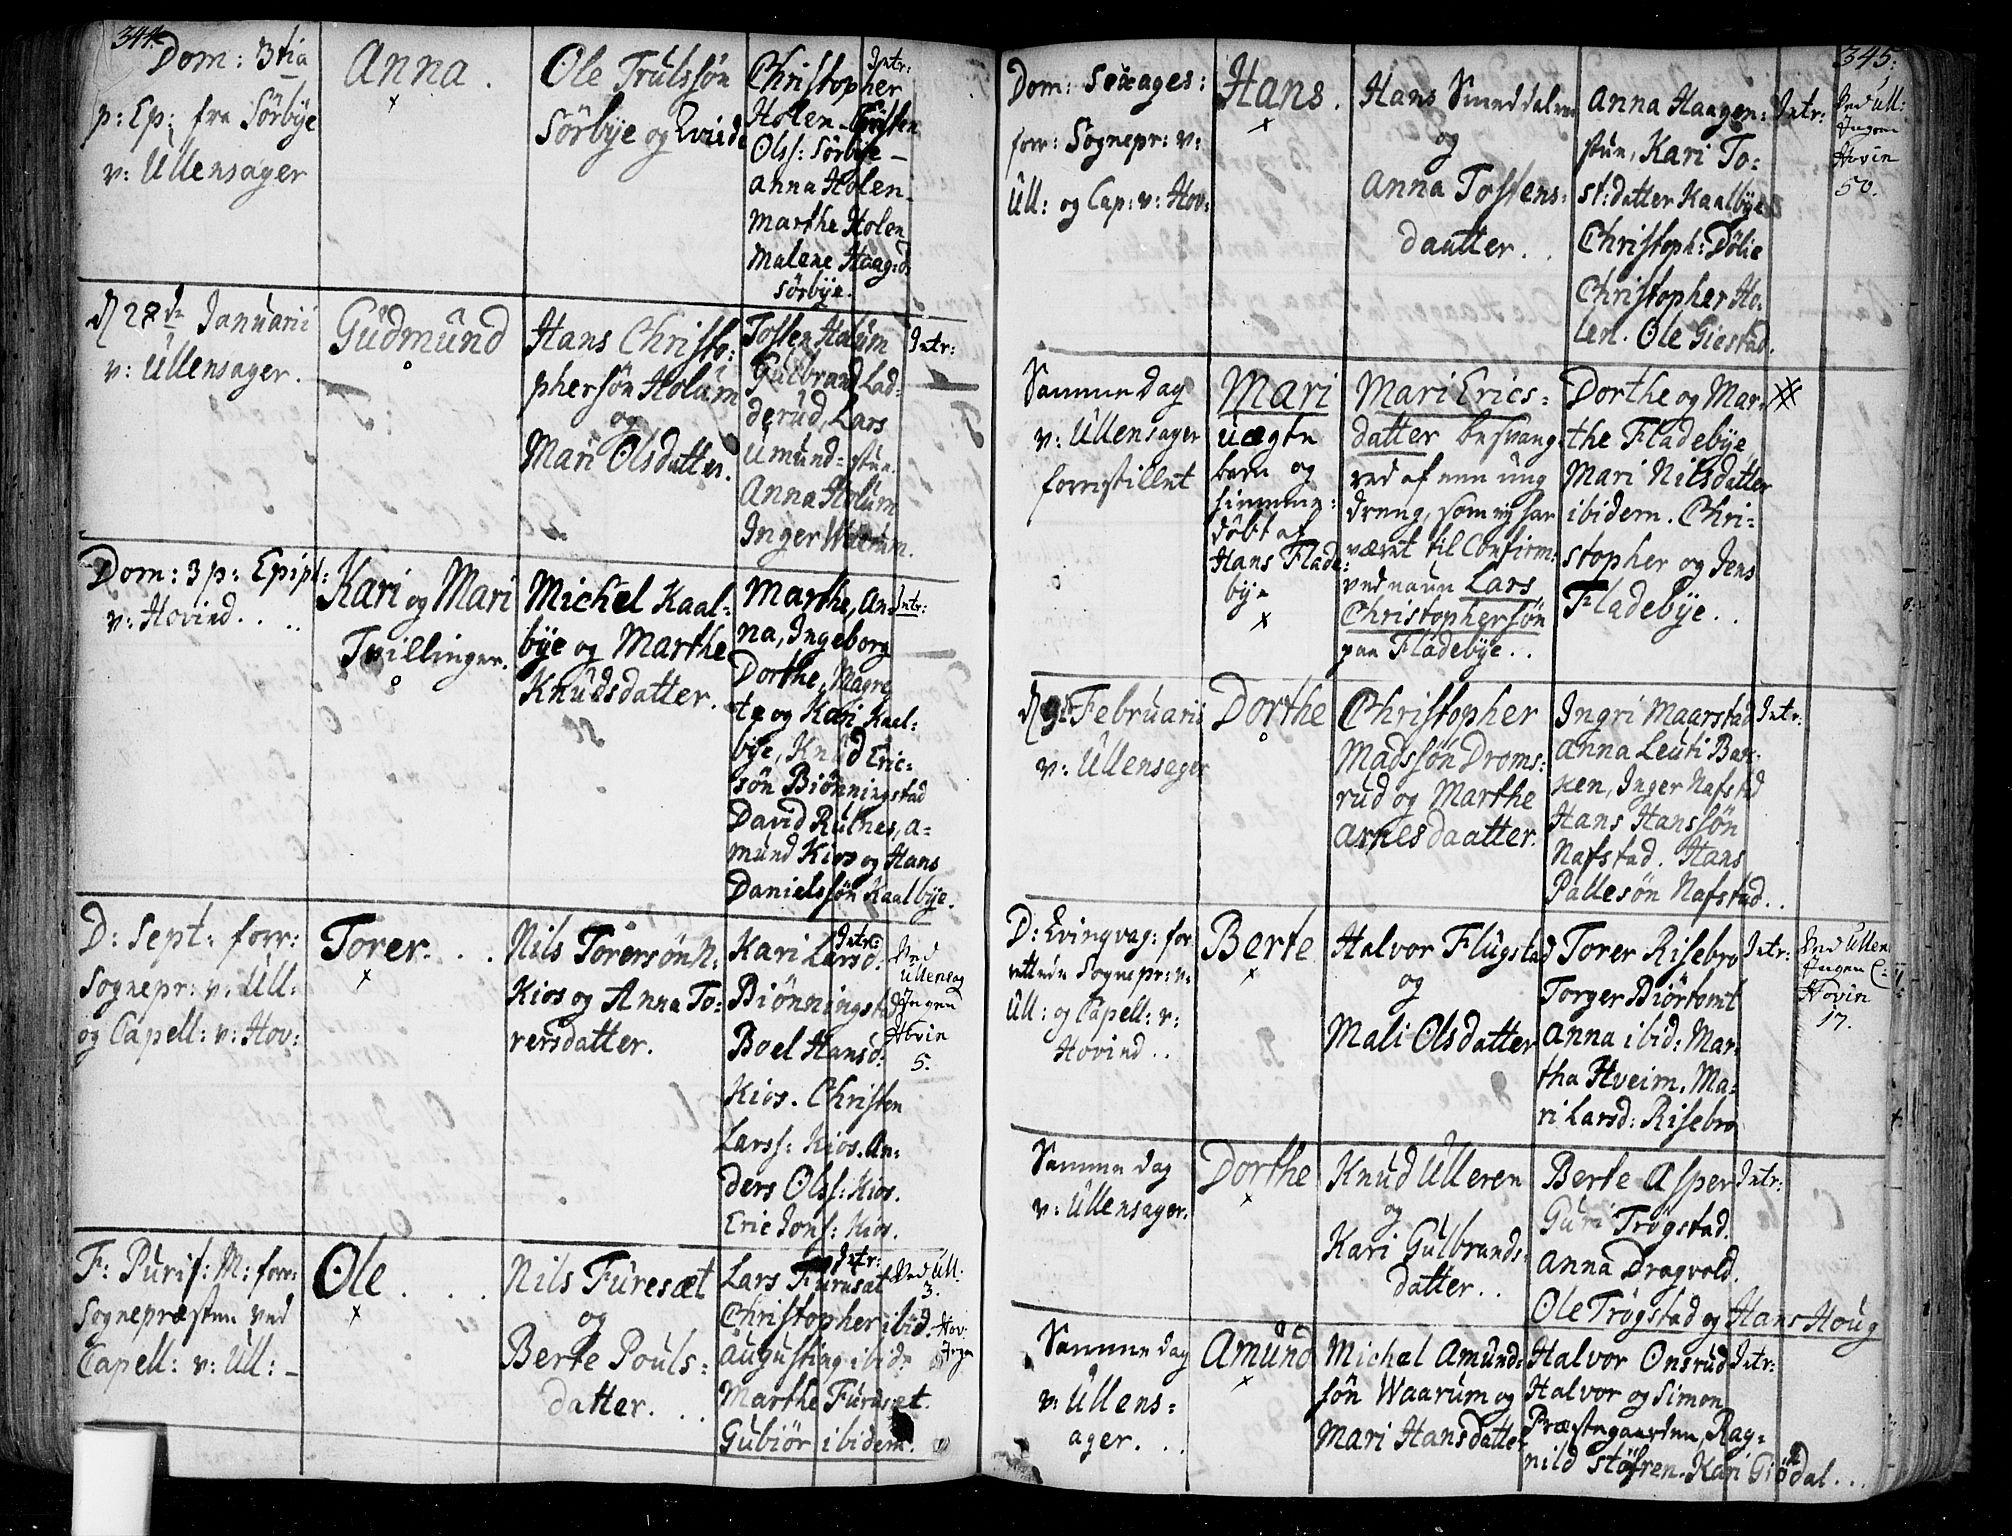 344.
Dom: 3tia
p: Ep: fra Sörbÿe
v: Ullensager
Anna.
Ole Trulssön
Sörbÿe og
Intr:
Christopher
Holen
Olss: Sörbÿe
Anna Holen
Marthe Holen
Malene Haag:d:
Sörbÿe.
d 28de Januarii
v: Ullensager.
Gudmund
Hans Christo:
phersön Holum
og
Mari Olsdatter.
Tosten Holum
Gulbrand Lad=
derud, Lars
Umund=stue.
Anna Holum
Inger
Intr:
Dom: 3 p: Epiph:
v: Hovind...
Kari og Mari
Tvillinger.
Michel Kaal=
bÿe og Marthe
Knudsdatter.
Marthe, An=
na, Ingeborg
Dorthe, Magre
te og Kari Kaal:
bÿe, Knud Eric=
sön Biönningstad
David Rulnes, A=
mund Kios og Hans
Danielssön Kaalbÿe.
Intr:
D: Sept: forr:
Sognepr: v: Ull:
og Capell: v: Hov:
Torer...
Nils Torersön N:
Kios og Anna To=
rersdatter.
Intr:
Kari Larsd:
Biönningstad
Boel Hansd:
Kios. Christen
Larss: Kios. An=
ders Olss: Kios.
Eric Jons: Kios.
Ved
Ullensag
Ingen
Hovin
5.
F: Purif: M: forr:
Sognepræsten ved
Capell: v: Ull: -
Ole...
Nils Furesæt
og
Berte Pouls=
datter...
Intr:
Lars Furusæt
Christopher ibid:
Augusting ibid:
Marthe Furuset.
Gubiör ibidem.
Ved Ull:
3.
Hov:
Ingen
345.
Dom: Sexages:
forr: Sognepr: v:
Ull: og Cap: v: Hov:
Hans.
Hans Smeddalen
og
Anna Tostens=
daatter..
Anna Haagen=
stue, Kari To=
st:datter Kaalbÿe
Christoph: Dölie
Christopher Ho=
len. Ole Giestad.
Intr:
Ved Ull:
Ingen
Hovin
50.
Samme dag
v: Ullensager
forrestillet
Mari
uægte
barn og
hiemme=
döbt af
Hans Flade=
bÿe
Mari Erics=
datter besvang=
red af een ung
dreng, som ey har
været til Confirm:
ved navn Lars
Christophersön
paa Fladebÿe..
Dorthe og Mar=
the Fladebÿe,
Mari Nilsdatter
ibidem. Chri=
stopher og Jens
Fladebÿe..
d 9de Februarii
v: Ullensager
Dorthe
Christopher
Madssön Droms=
rud og Marthe
Arnesdaatter.
Ingri Maarstad
Anna Leuti Bak=
ken, Inger Nafstad
Hans Hanssön
Nafstad. Hans
Pallesön Nafstad..
Intr:
D: Qvinqvag: for
rettede Sognepr: v:
Ull: og Capell: v:
Hovind..
Berte
Halvor Flugstad
og
Mali Olsdatter
Torer Risebro
Torger Biörtomt
Anna ibid: Mar=
tha Hveim. Ma=
ri Larsd: Risebro
Intr:
Ved Ullen
Ingen C:
Hovin
17.
Samme dag
v: Ullensager.
Dorthe
Knud Ulleren
og
Kari Gulbrands=
datter..
Berte Asper
Guri Trögstad.
Anna Dragvold.
Ole Trögstad og Hans Houg
Intr:
Samme dag
v: Ullens=
ager...
Amund
Michel Amund=
sön Waarum og
Mari Hansdatter
Halvor Onsrud
Halvor og Simon
Præstegaarden, Rag=
nild Stöfren. Kari Giödal...
Intr: